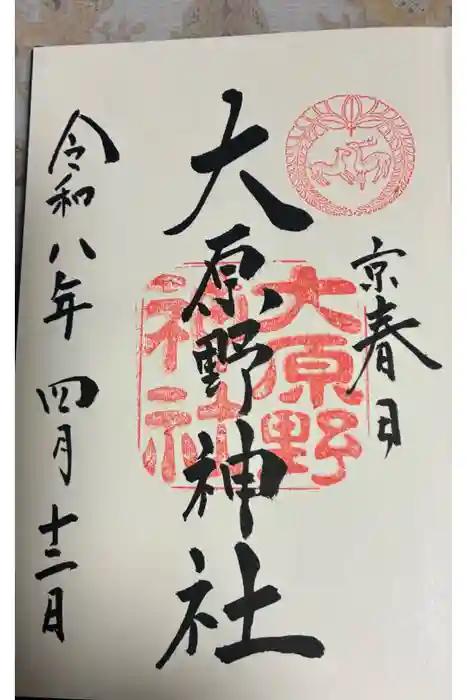 京春日
大原野神社
大原野
神社
令和八年四月十二日